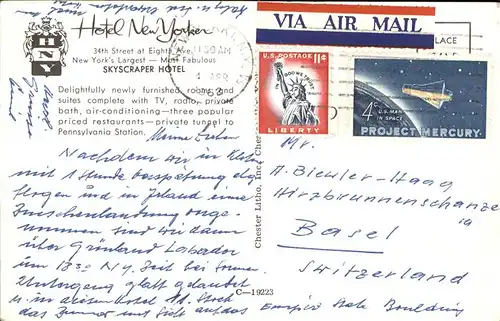 Hotel New Yorker
HNY
34th Street at Eighth Ave.
New York's Largest — Most Fabulous
SKYSCRAPER HOTEL
Delightfully newly furnished rooms and
suites complete with TV, radio, private
bath, air-conditioning—three popular
priced restaurants—private tunnel to
Pennsylvania Station.
Meine Lieben
Nachdem wir in Kloten
mit 1 Stunde Verspätung abge
flogen und in Irland eine
Zwischenlandung vorge-
nommen sind wir dann
über Grönland Labrador
um 1830 N.Y. Zeit bei Sonnen
Untergang glatt gelandet
u. in diesem Hotel Stock
das Zimmer mit Sicht auf das Empire State Building
C—19223
Chester Litho, Inc., Chester
VIA AIR MAIL
PLACE
AM
APR
U.S. POSTAGE 11¢
IN GOD WE TRUST
LIBERTY
4¢
U.S. MAN
IN SPACE
PROJECT MERCURY
Mr.
A. Bleuler-Haag
Hirzbrunnenschanze
Basel
Switzerland